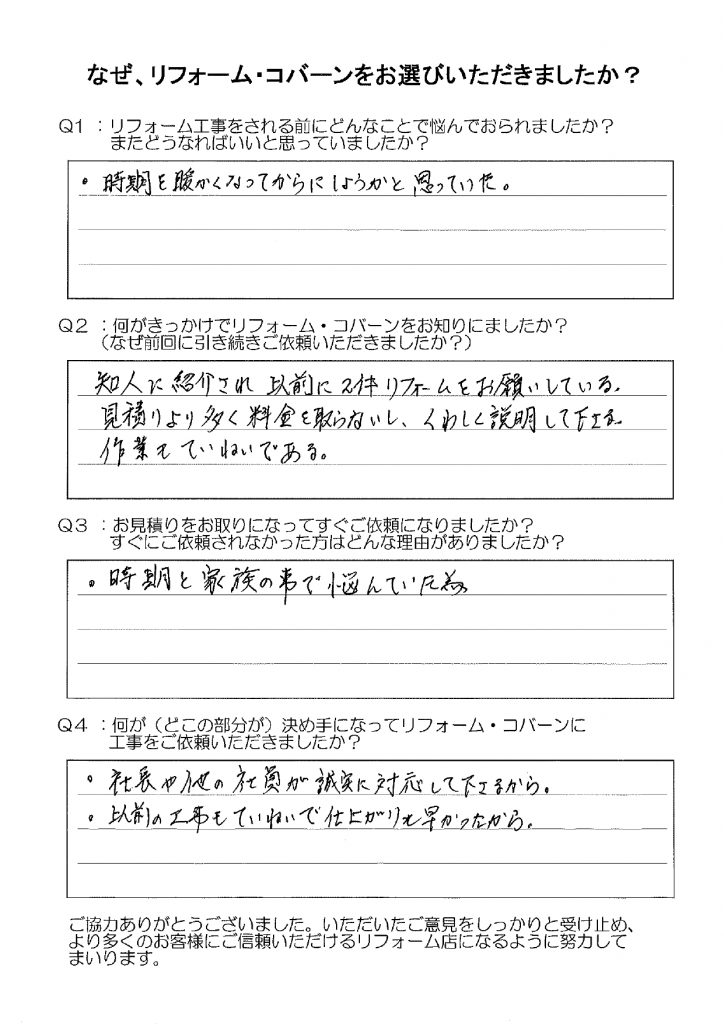 なぜ、リフォーム・コバーンをお選びいただきましたか？
Q1 ：リフォーム工事をされる前にどんなことで悩んでおられましたか？
またどうなればいいと思っていましたか？
・時期を暖かくなってからにしようかと思っていた。
Q2 ：何がきっかけでリフォーム・コバーンをお知りにましたか？
（なぜ前回に引き続きご依頼いただきましたか？）
知人に紹介され 以前に2件リフォームをお願いしている。
見積りより多く料金を取らないし、くわしく説明して下さる。
作業もていねいである。
Q3 ：お見積りをお取りになってすぐご依頼になりましたか？
すぐにご依頼されなかった方はどんな理由がありましたか？
・時期と家族の事で悩んでいた為。
Q4 ：何が（どこの部分が）決め手になってリフォーム・コバーンに
工事をご依頼いただきましたか？
・社長や他の社員が誠実に対応して下さるから。
・以前の工事もていねいで仕上がりも早かったから。
ご協力ありがとうございました。いただいたご意見をしっかりと受け止め、
より多くのお客様にご信頼いただけるリフォーム店になるように努力して
まいります。